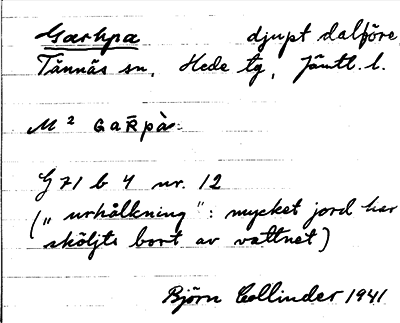 Garhpa djupt dalföre
Tännäs sn. Hede tg, Jämtl. l.
M² GaR̄pà:
G 71 b 4 nr. 12
(„urhålkning": mycket jord har
sköljts bort av vattnet)
Björn Collinder 1941